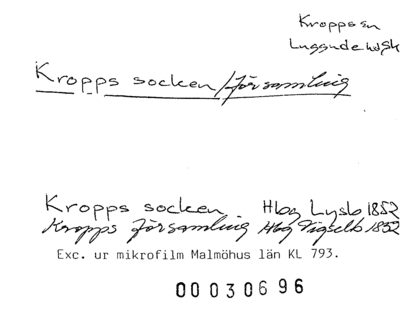 Kropps sn
Luggude hd Sk
Kropps socken/församling
Kropps socken Hbg Lysb 1852
Kropps församling Hbg Vigselb 1852
Exc. ur mikrofilm Malmöhus län KL 793.
00030696